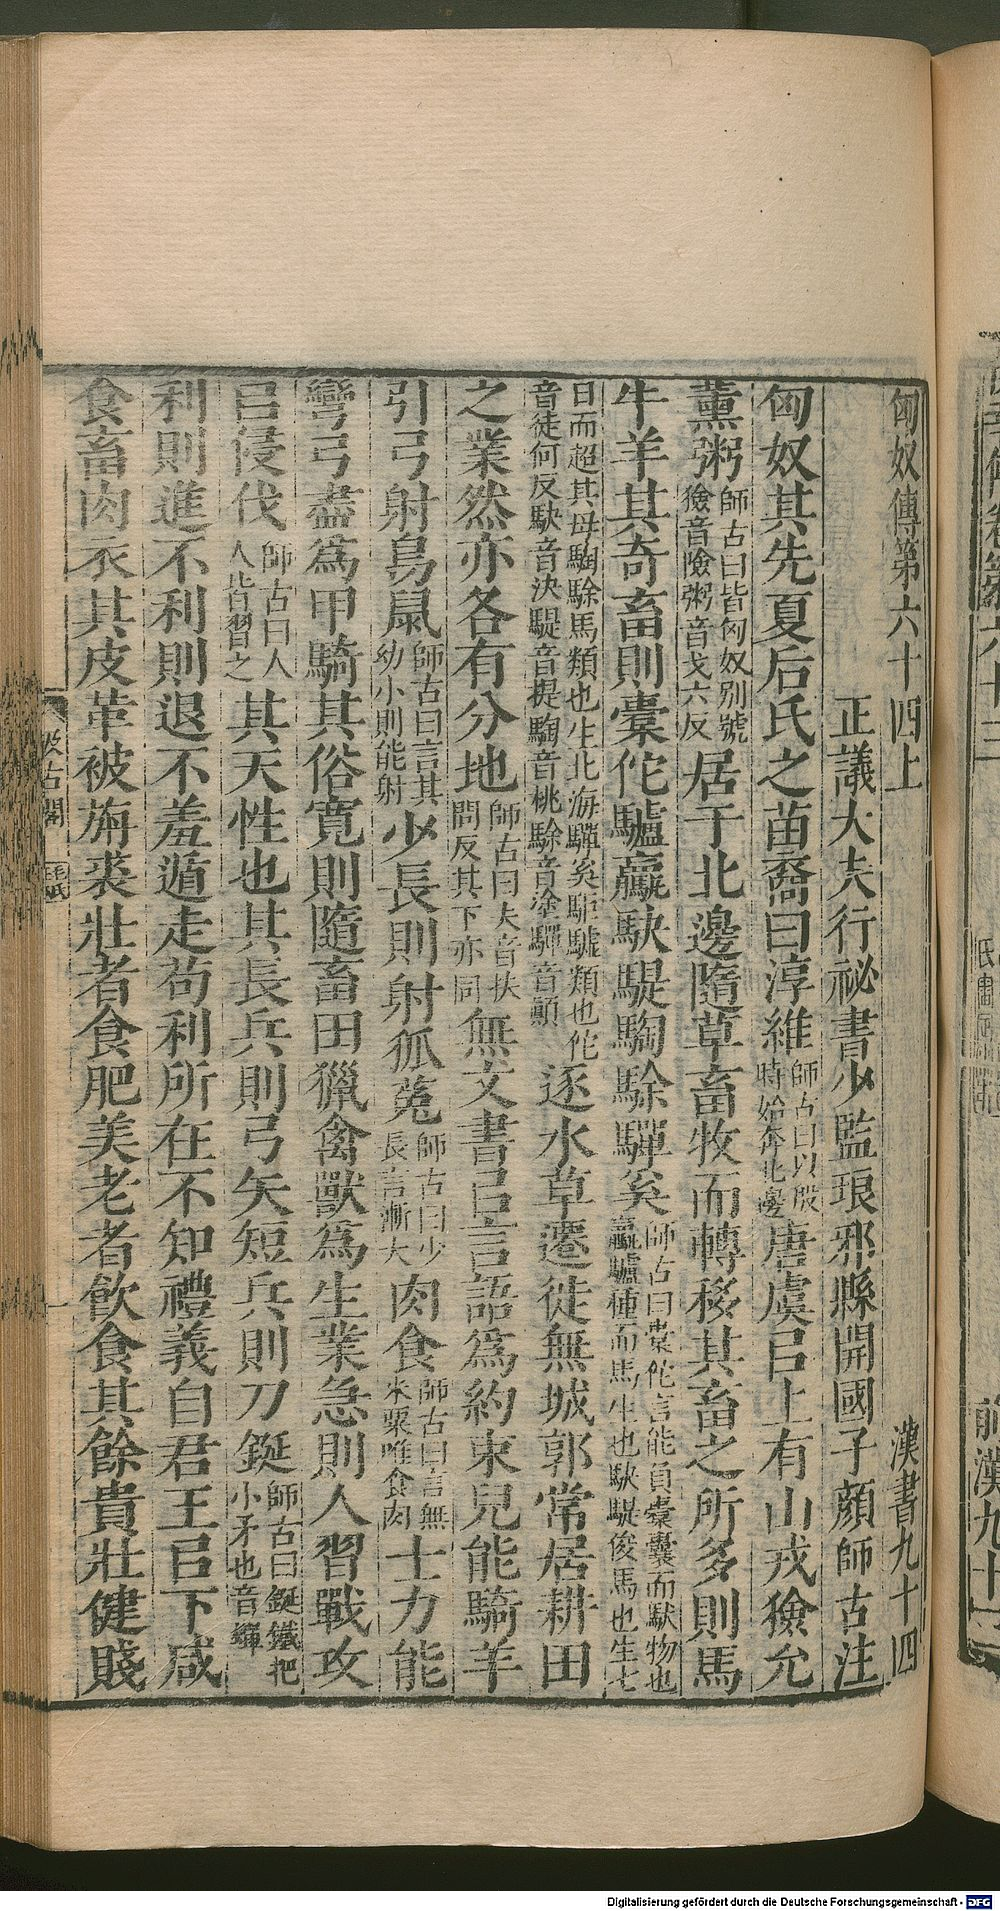 匈奴傳第六十四上　漢書九十四
正議大夫行祕書少監琅邪縣開國子顏師古注
匈奴其先夏后氏之苗裔曰淳維師古曰以殷時始奔北邊唐虞㠯上有山戎獫允
薰粥師古曰皆匈奴別號獫音險粥音弋六反居于北邊隨草畜牧而轉移其畜之所多則馬
牛羊其奇畜則橐佗驢驘駃騠騊駼驒奚師古曰橐佗言能負橐囊而馱物也驘驢種而馬生也駃騠俊馬也生七
日而超其母騊駼馬類也生北海驒奚駏驉類也佗音徒何反駃音決騠音提騊音桃駼音塗驒音顚逐水草遷徙無城郭常居耕田
之業然亦各有分地師古曰夫音扶問反其下亦同無文書㠯言語爲約束兒能騎羊
引弓射鳥鼠師古曰言其幼小則能射少長則射狐菟師古曰少長言漸大肉食師古曰言無米粟唯食肉士力能
彎弓盡爲甲騎其俗寬則隨畜田獵禽獸爲生業急則人習戰攻
㠯侵伐師古曰人人皆習之其天性也其長兵則弓矢短兵則刀鋋師古曰鋋鐵把小矛也音蟬
利則進不利則退不羞遁走苟利所在不知禮義自君王㠯下咸
食畜肉衣其皮革被旃裘壯者食肥美老者飲食其餘貴壯健賤
汲古閣
毛氏
前漢九十
Digitalisierung gefördert durch die Deutsche Forschungsgemeinschaft - DFG